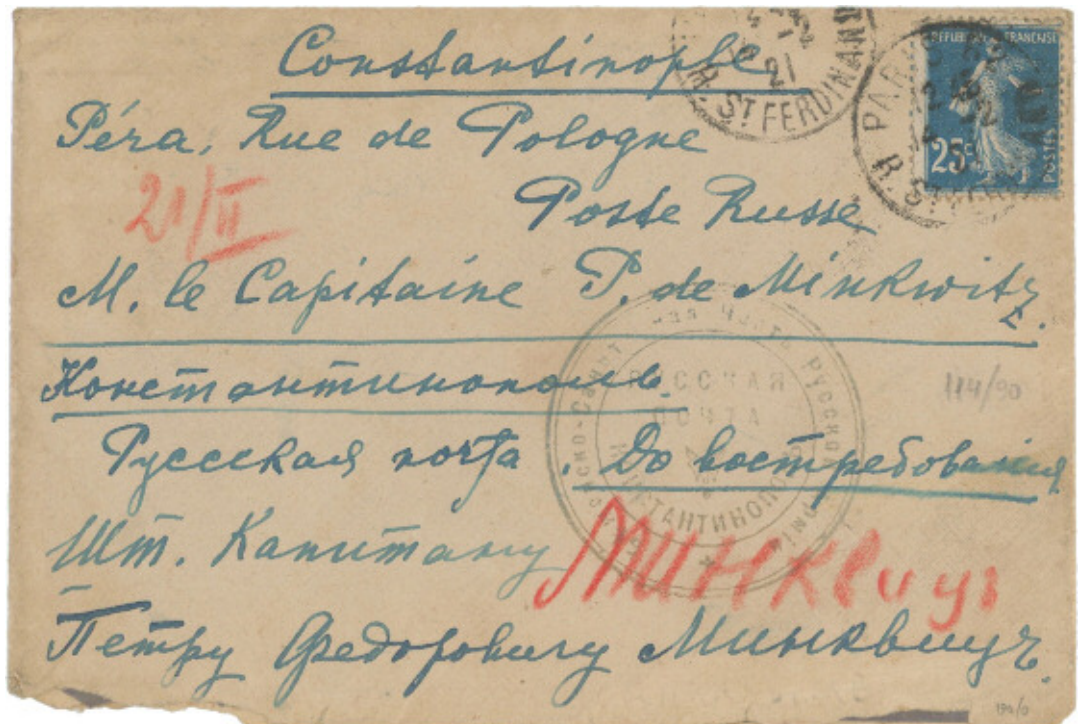 Constantinople
Péra, Rue de Pologne
Poste Russe
21/II
M. le Capitaine P. de Minkwitz.
Константинополь.
Русская почта. До востребования
Шт. Капитану
Минквицъ
Петру Федоровичу Минквицъ.
R. ST FERDINAND
21
PARIS
R. ST
REPUBLIQUE FRANCAISE
25c
POSTES
РУССКАЯ
ПОЧТА
114/90